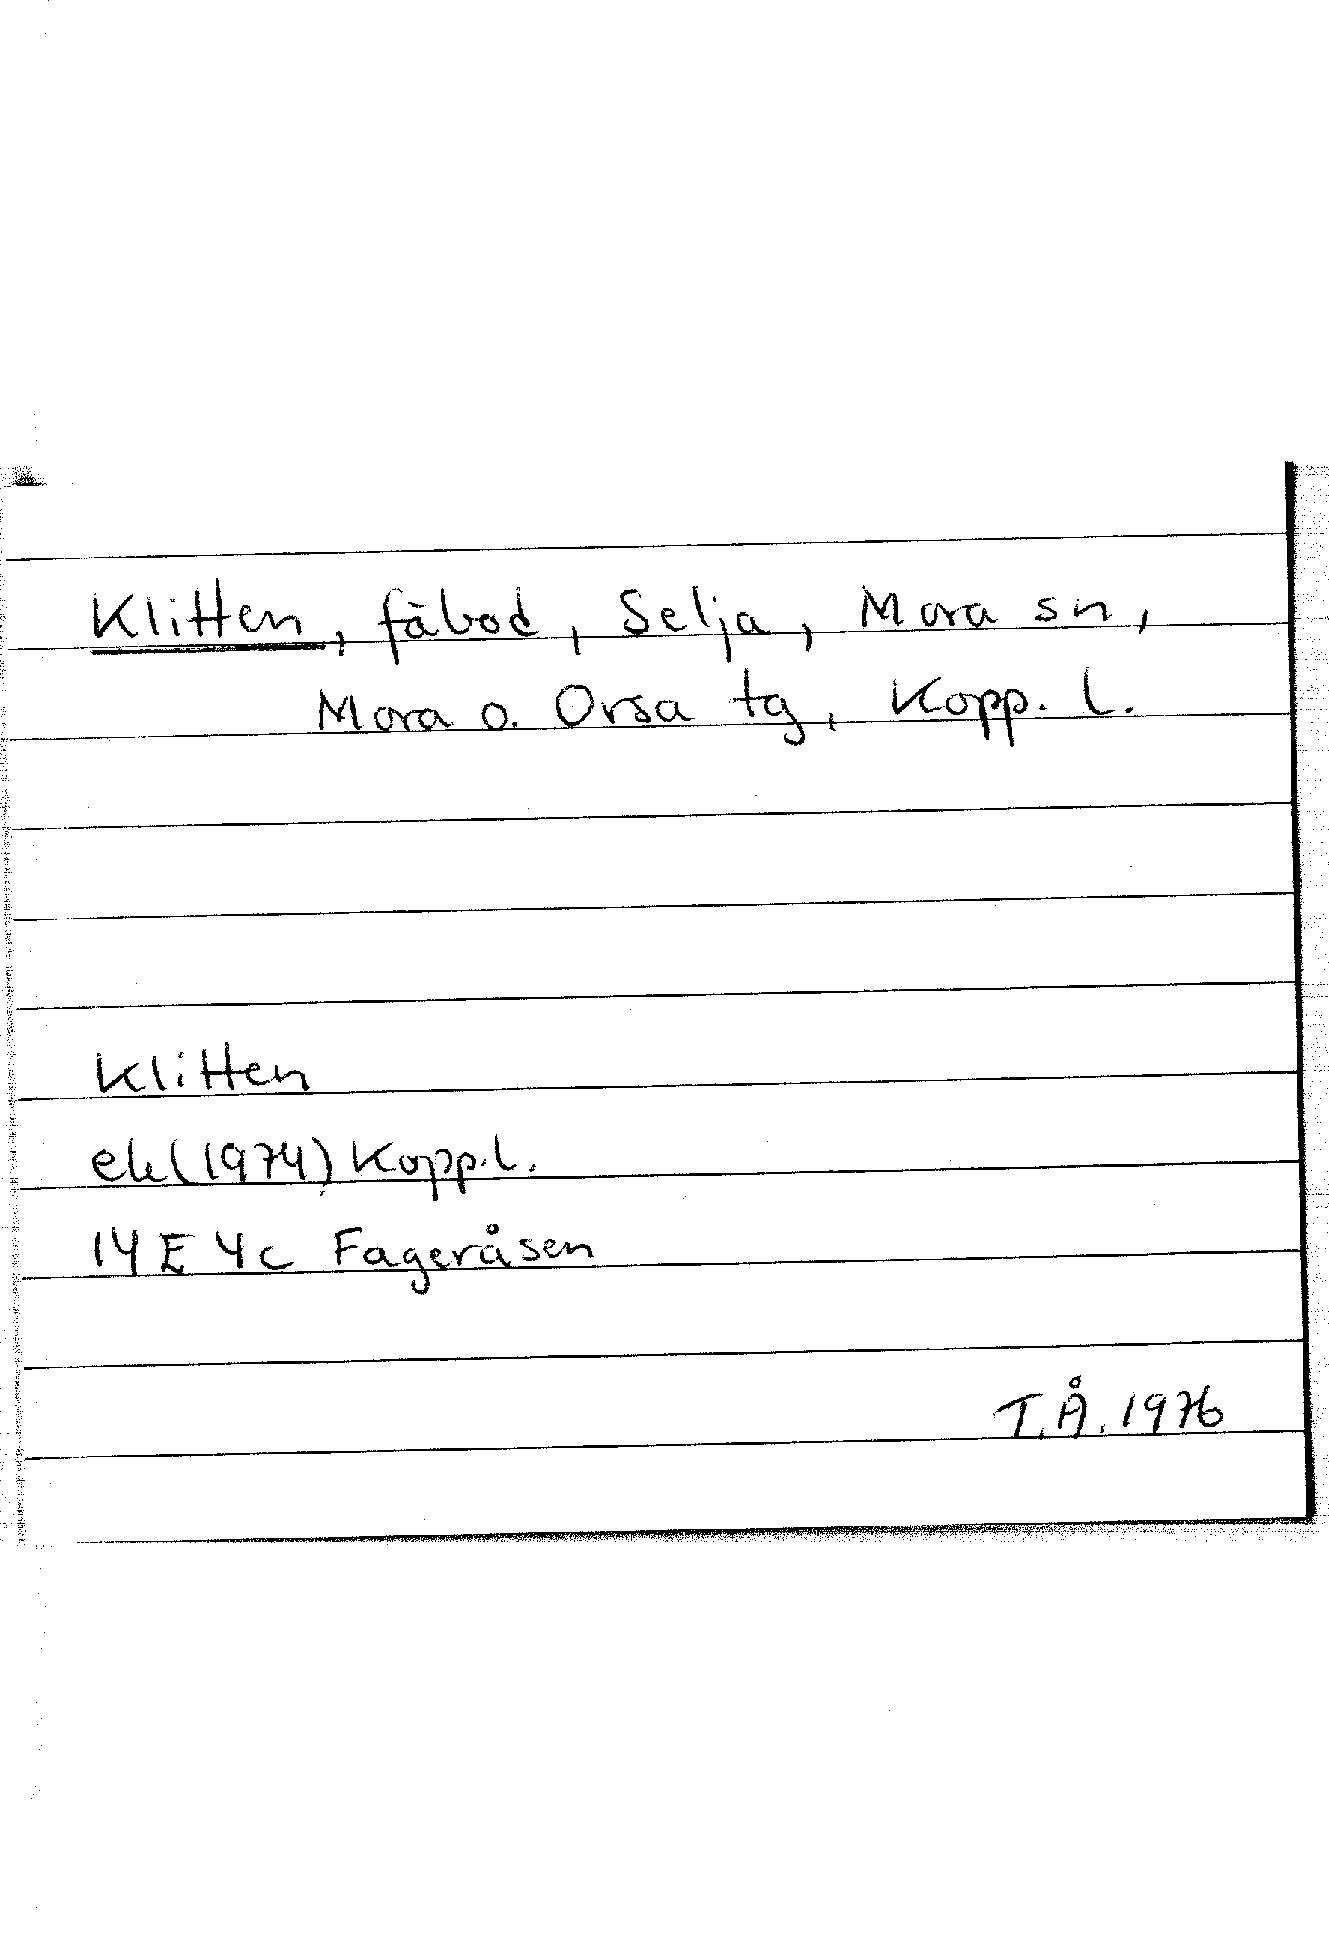 Klitten, fäbod, Selja, Mora sn,
Mora o. Orsa tg, Kopp. l.
Klitten
ek (1974) Kopp. l.
14 E 4 c Fageråsen
T.Å. 1976